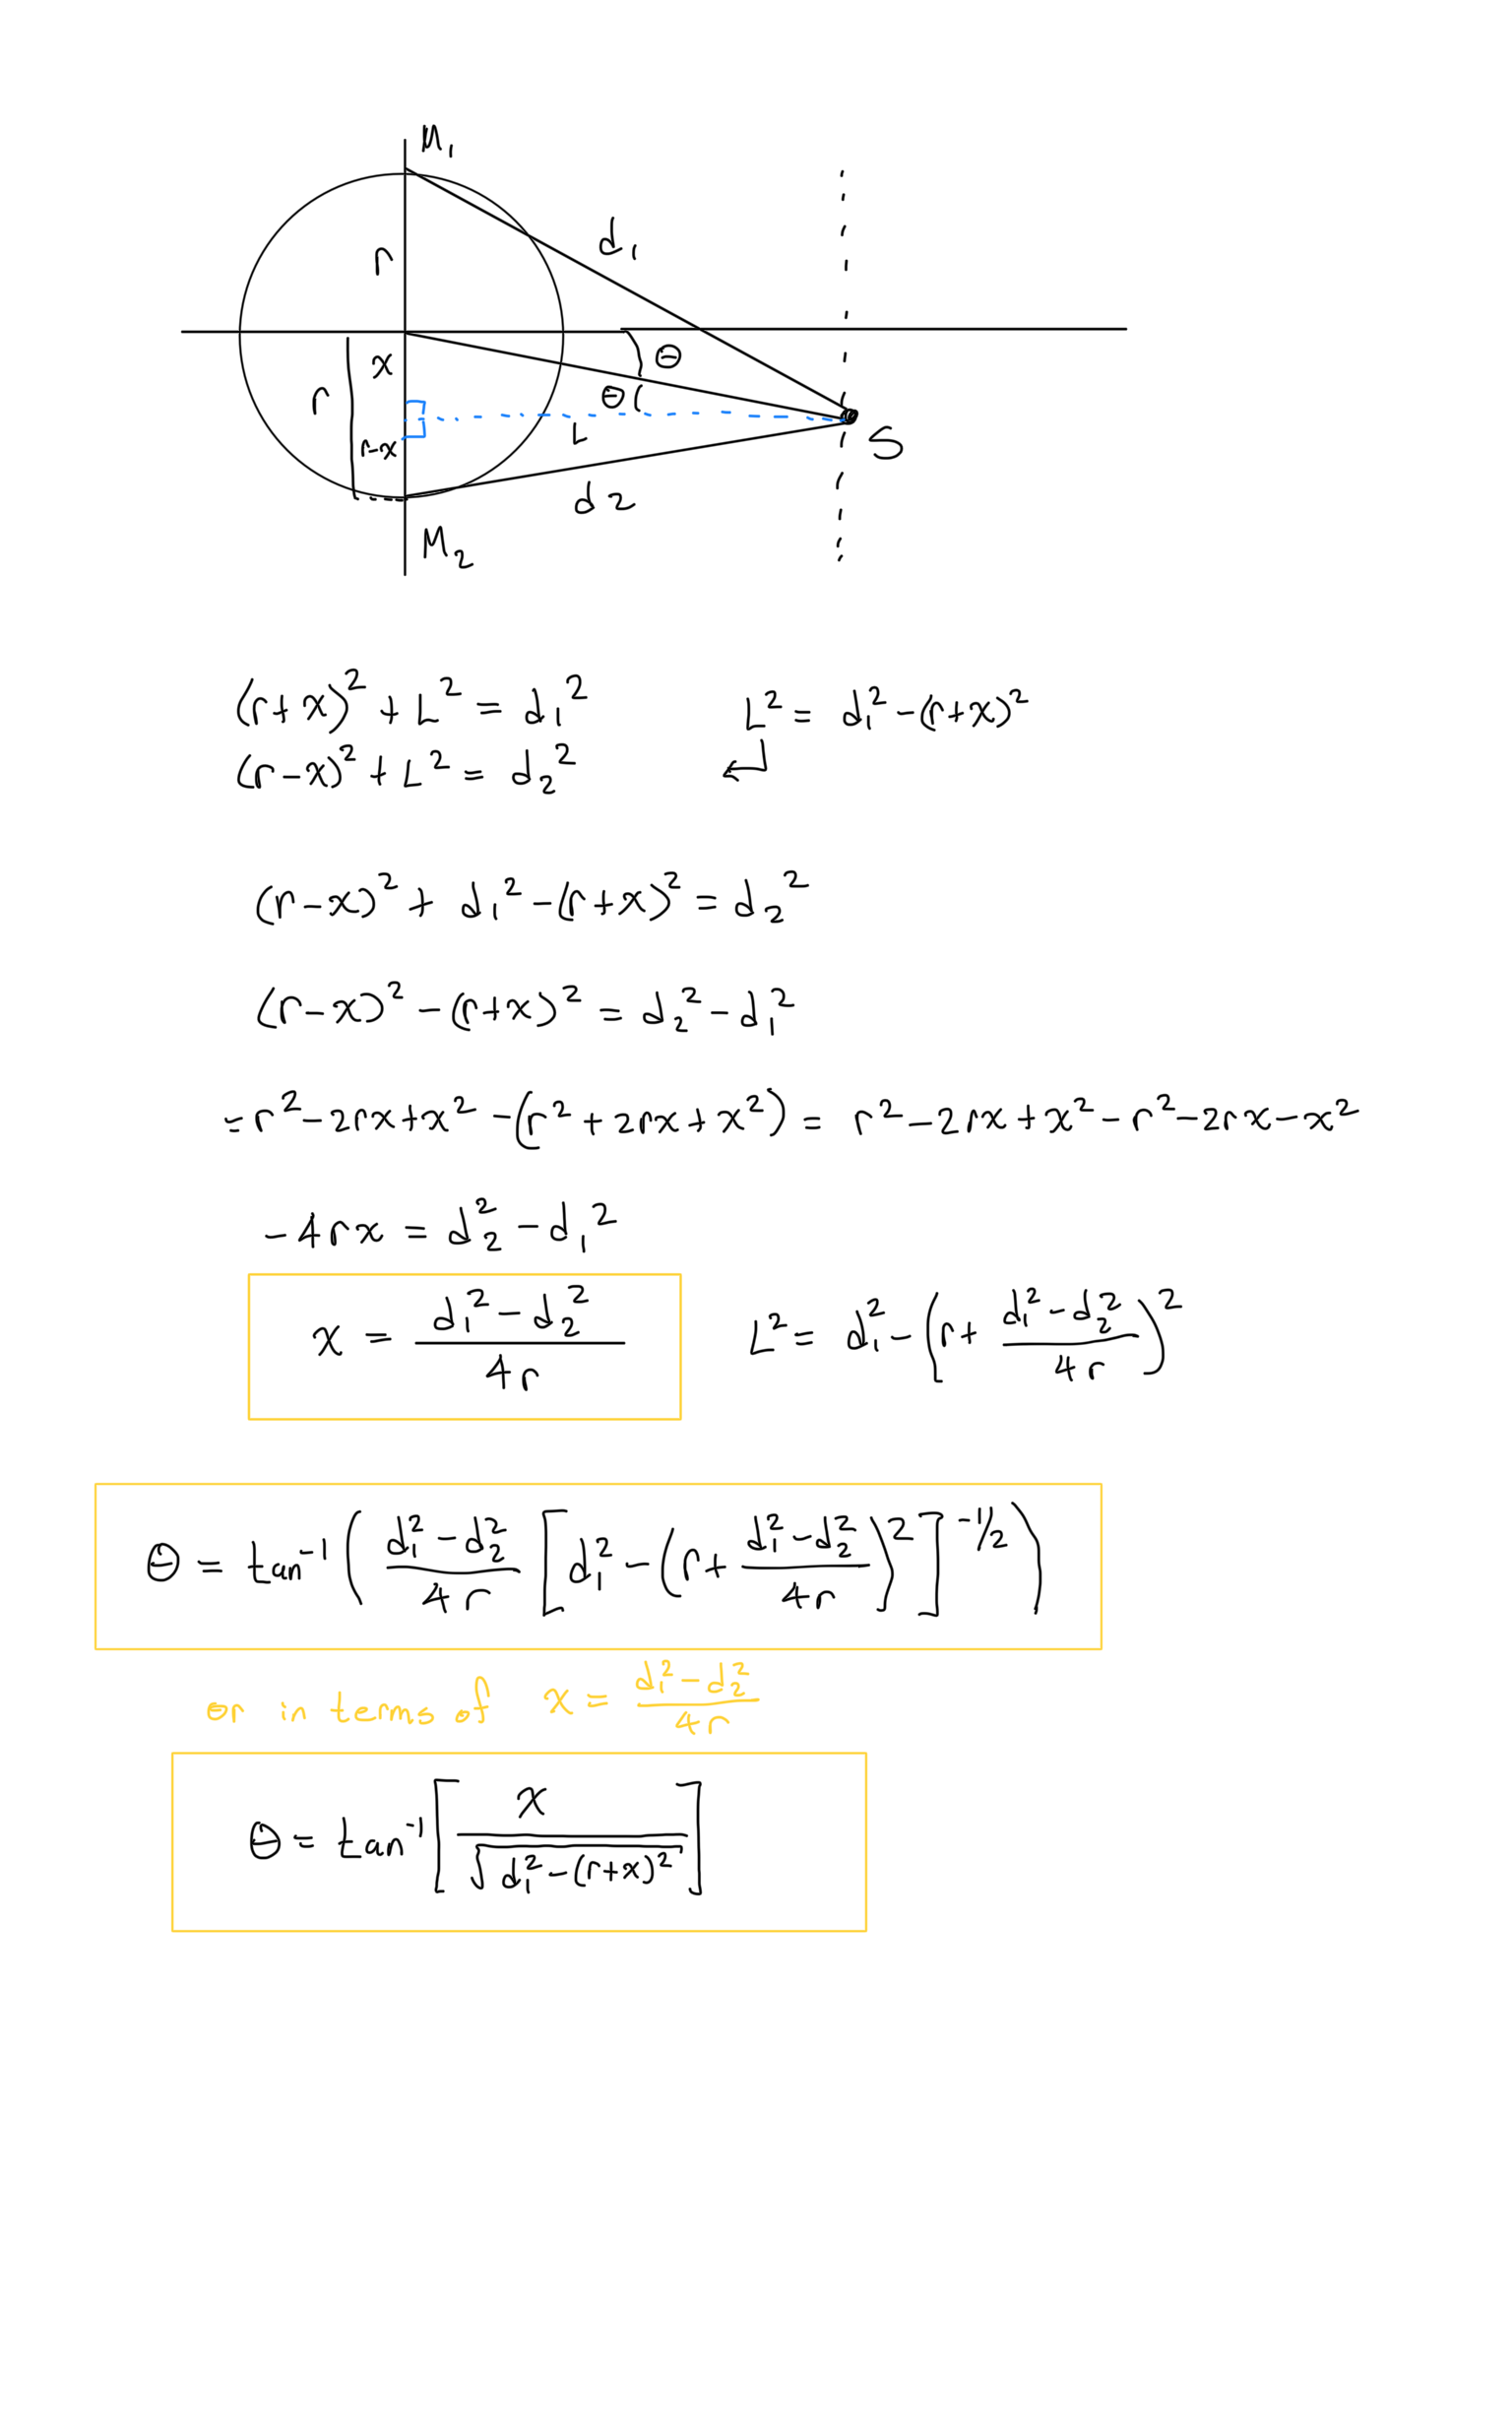 M₁
r
d₁
x
θ
r
θ
r-x
L
S
d₂
M₂
(r+x)² + L² = d₁²
L² = d₁² - (r+x)²
(r-x)² + L² = d₂²
(r-x)² + d₁² - (r+x)² = d₂²
(r-x)² - (r+x)² = d₂² - d₁²
= r² - 2rx + x² - (r² + 2rx + x²) = r² - 2rx + x² - r² - 2rx - x²
-4rx = d₂² - d₁²
x = (d₁² - d₂²)/4r
L² = d₁² - (r + (d₁² - d₂²)/4r)²
θ = tan⁻¹( (d₁² - d₂²)/4r [d₁² - (r + (d₁² - d₂²)/4r)²]^(-1/2) )
or in terms of x = (d₁² - d₂²)/4r
θ = tan⁻¹[ x/√(d₁² - (r+x)²) ]